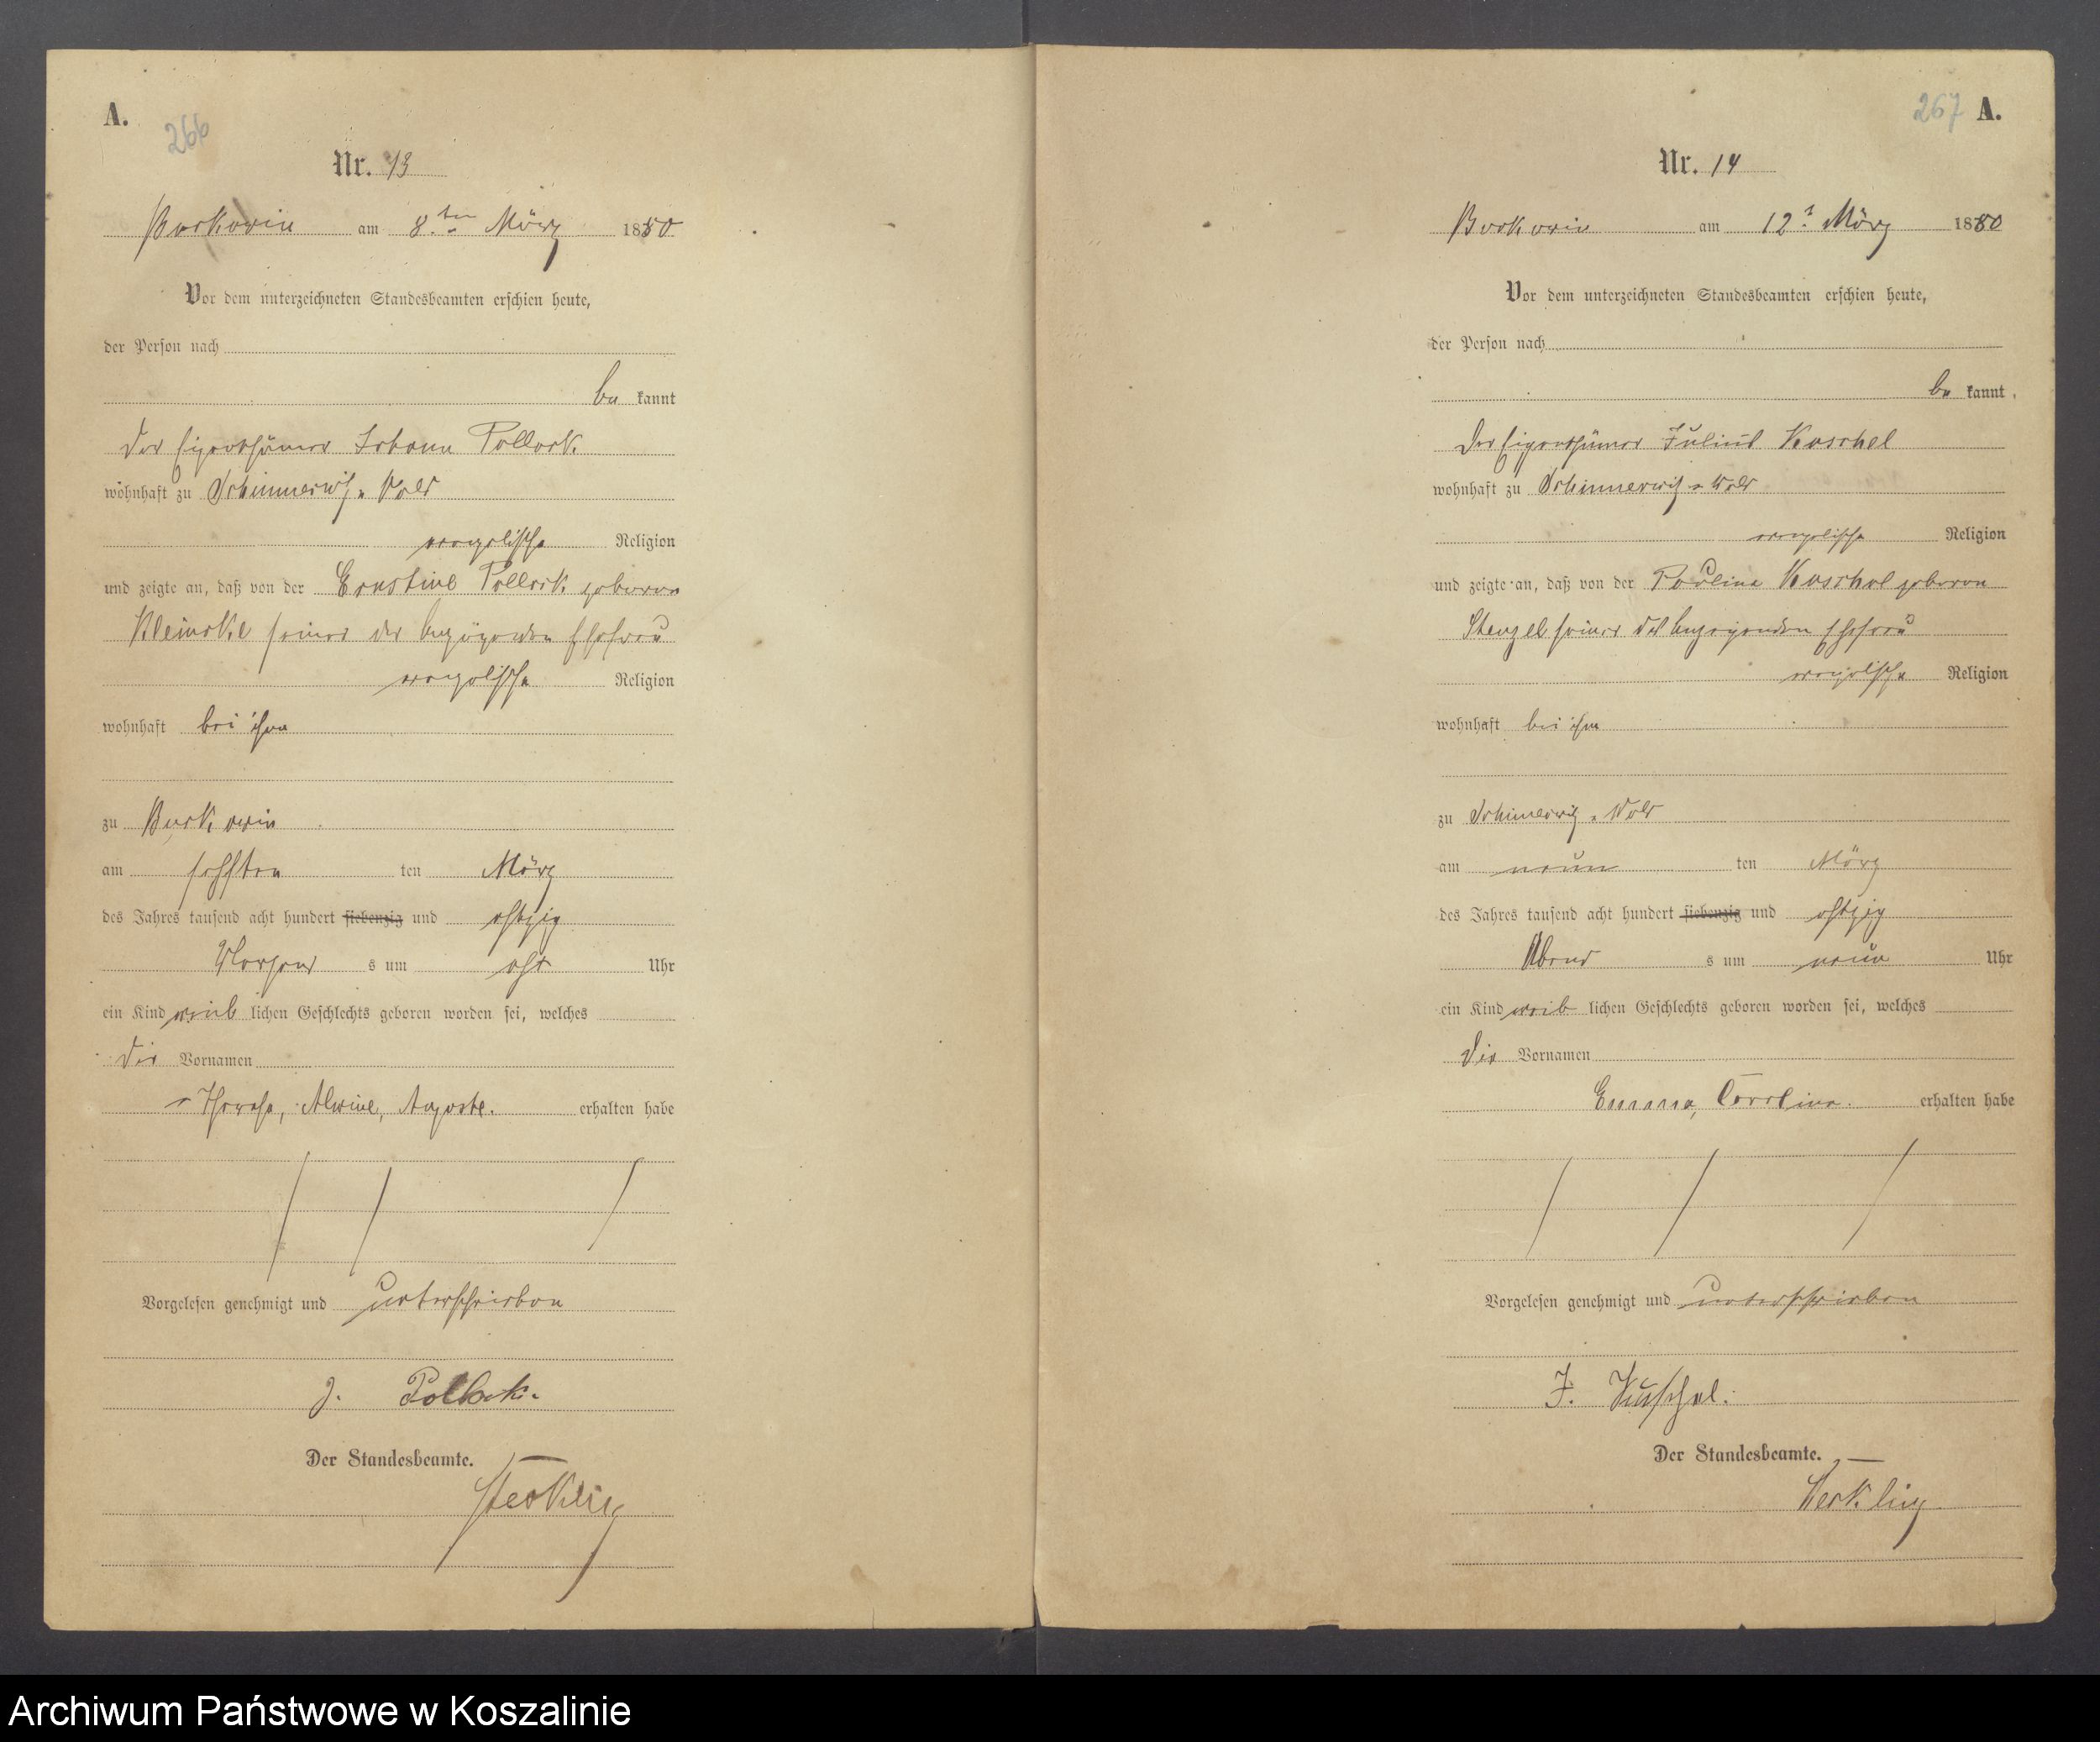 A.
266
Nr. 13
Buckowin am 8ten März 1880
Vor dem unterzeichneten Standesbeamten erschien heute,
der Person nach
be kannt
der Eigenthümer Johann Pollack
wohnhaft zu Schimmerwitz-Wald
evangelische Religion
und zeigte an, daß von der Ernstine Pollack geboren
seiner des Anzeigenden Ehefrau
evangelische Religion
wohnhaft bei ihm
zu Buckowin
am sechsten ten März
des Jahres tausend acht hundert siebenzig und achtzig
s um acht Uhr
ein Kind weib lichen Geschlechts geboren worden sei, welches
die Vornamen
Alwine, Auguste. erhalten habe
Vorgelesen genehmigt und unterschrieben
J. Pollack.
Der Standesbeamte.
267 A.
Nr. 14
Buckowin am 12t März 1880
Vor dem unterzeichneten Standesbeamten erschien heute,
der Person nach
be kannt
der Eigenthümer Julius Kuschel
wohnhaft zu Schimmerwitz-Wald
evangelische Religion
und zeigte an, daß von der Pauline Kuschel geboren
Stenzel seiner des Anzeigenden Ehefrau
evangelische Religion
wohnhaft bei ihm
zu Schimmerwitz-Wald
am neun ten März
des Jahres tausend acht hundert siebenzig und achtzig
Abend s um neun Uhr
ein Kind weib lichen Geschlechts geboren worden sei, welches
die Vornamen
Emma, Caroline. erhalten habe
Vorgelesen genehmigt und unterschrieben
J. Kuschel.
Der Standesbeamte.
Archiwum Państwowe w Koszalinie